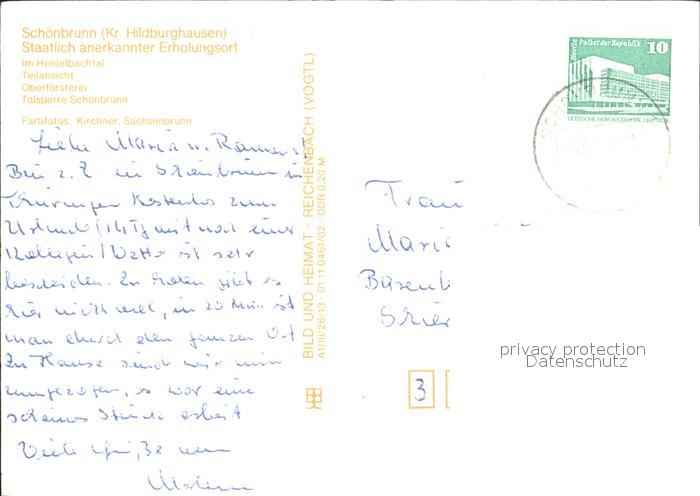 Schönbrunn (Kr. Hildburghausen)
Staatlich anerkannter Erholungsort
Im Heidelbachtal
Teilansicht
Oberförsterei
Talsperre Schönbrunn
Farbfotos: Kirchner, Sachsenbrunn
Liebe Maria u.
Bin z. Z. in Schönbrunn in
Thüringen kostenlos zum
Urlaub mit noch einer
Kollegin Wetter ist sehr
bescheiden. Zu holen gibt es
hier nicht viel, in 20 Min. ist
man durch den ganzen Ort
Zu Hause sind wir nun
umgezogen, es war eine
schönes Stück Arbeit
Viele Grüße von
BILD UND HEIMAT · REICHENBACH (VOGTL)
A1/III/26/13 01 11 0461/02 DDR 0,20 M
Berlin Palast der Republik
10
DEUTSCHE DEMOKRATISCHE REPUBLIK
Frau
Mari
3
privacy protection
Datenschutz